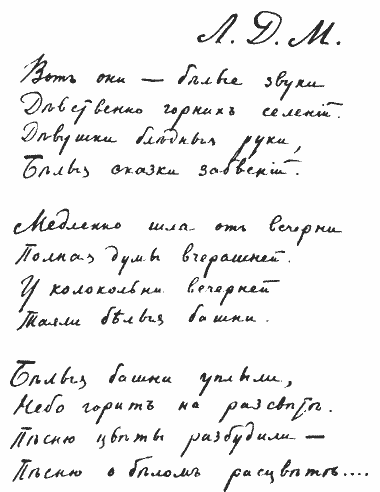 Л. Д. М.
Вотъ они — бѣлые звуки
Дѣвственно горнихъ селенiй.
Дѣвушки блѣдныя руки,
Бѣлыя сказки забвенiй.
Медленно шла отъ вечерни
Полная думы вчерашней.
У колокольни вечерней
Таяли бѣлыя башни.
Бѣлыя башни уплыли,
Небо горитъ на разсвѣтѣ.
Пѣсню цвѣты разбудили —
Пѣсню о бѣломъ расцвѣтѣ....